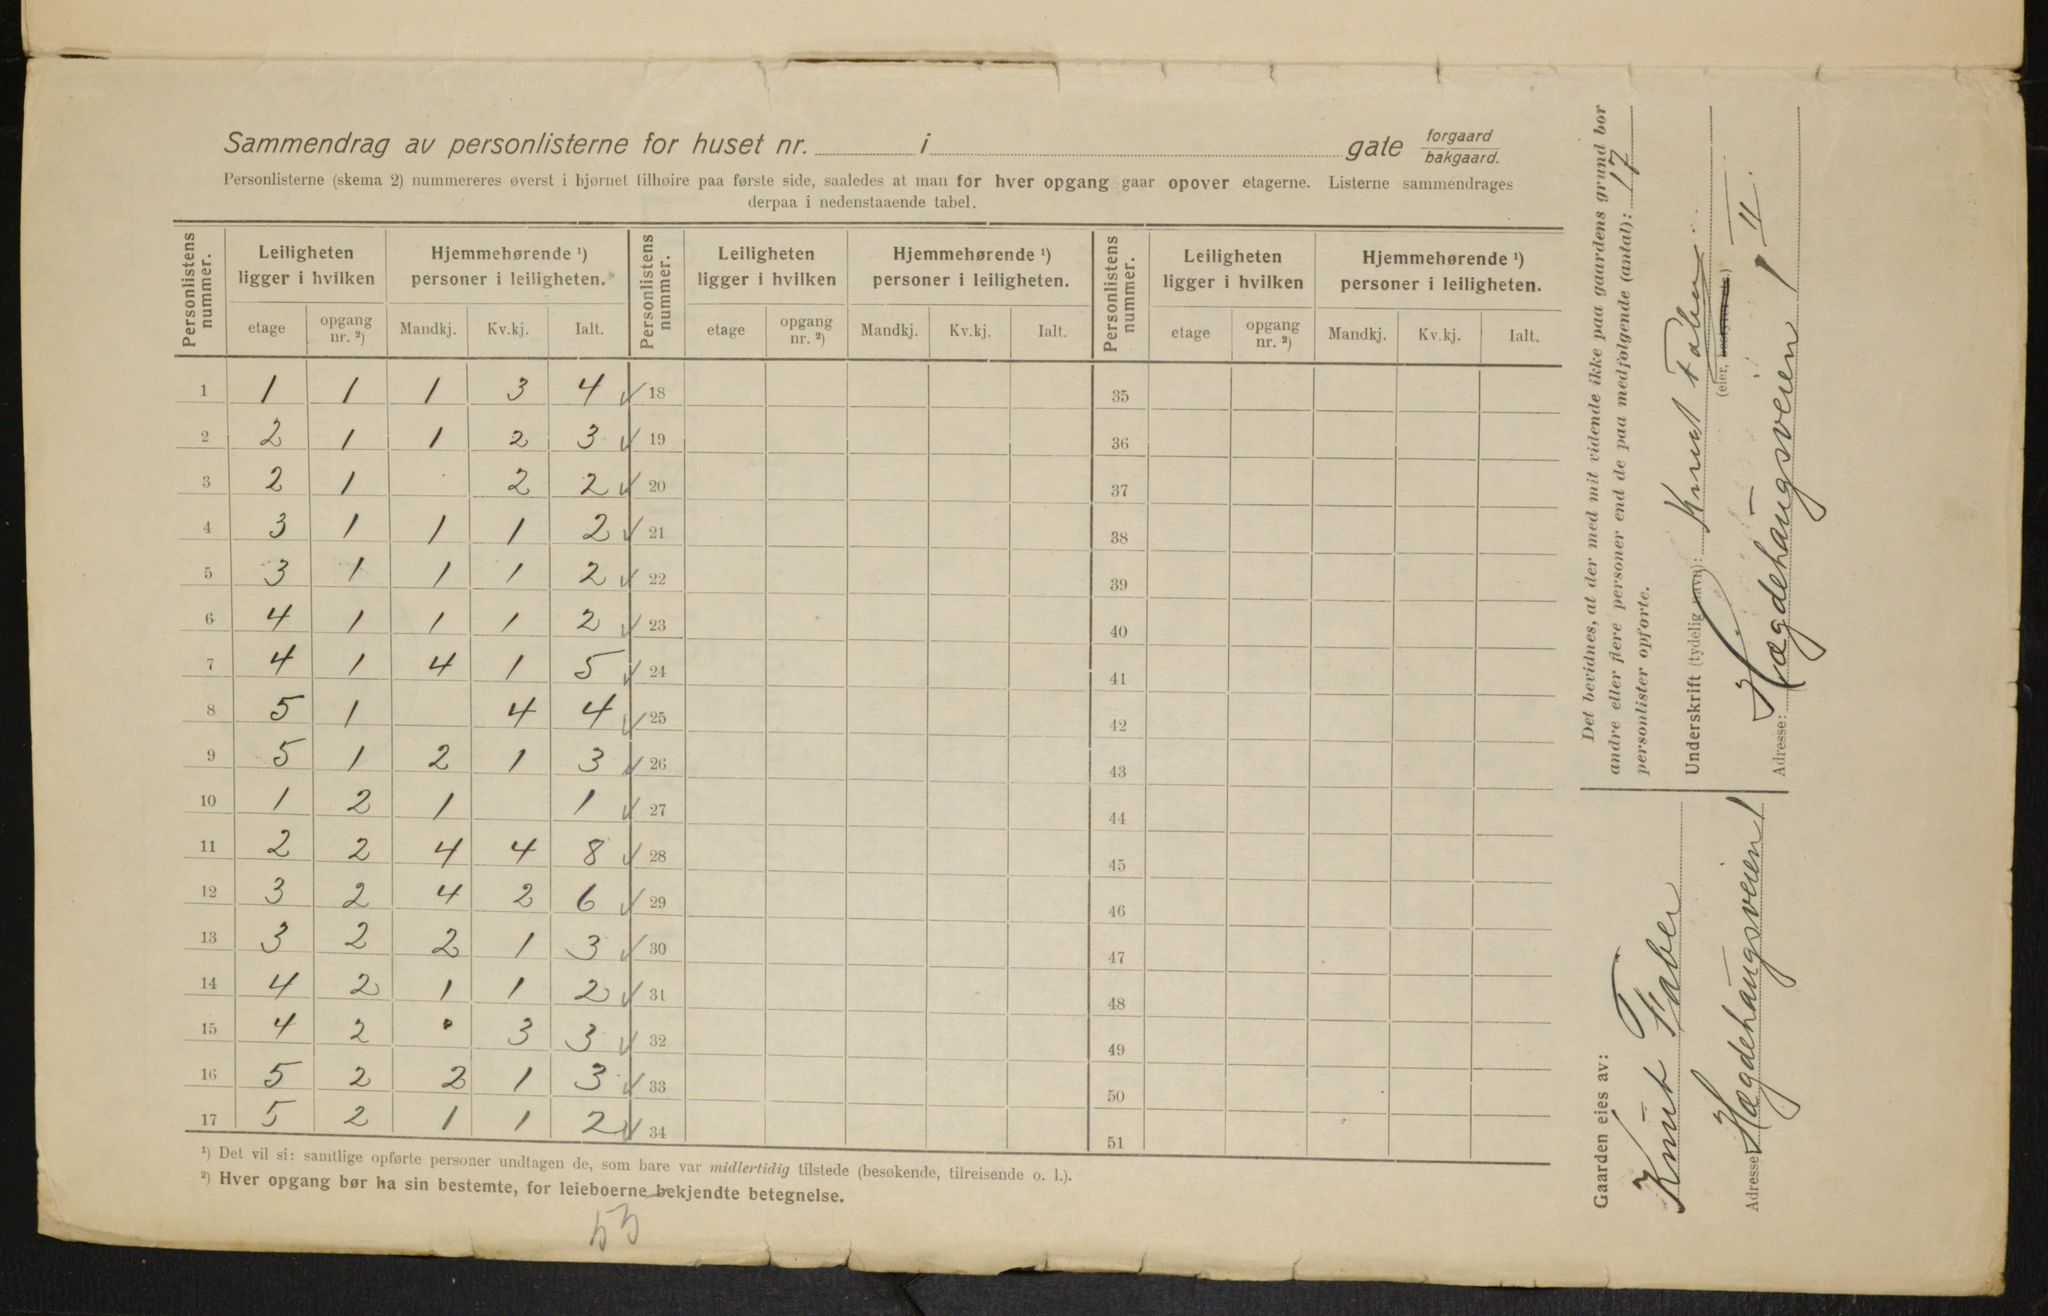 Sammendrag av personlisterne for huset nr. i gate forgaard bakgaard.
Personlisterne (skema 2) nummereres øverst i hjørnet tilhøire paa første side, saaledes at man for hver opgang gaar opover etagerne. Listerne sammendrages
derpaa i nedenstaaende tabel.
Personlistens nummer. Leiligheten ligger i hvilken Hjemmehørende ¹) personer i leiligheten. Personlistens nummer. Leiligheten ligger i hvilken Hjemmehørende ¹) personer i leiligheten. Personlistens nummer. Leiligheten ligger i hvilken Hjemmehørende ¹) personer i leiligheten.
etage opgang nr. ²) Mandkj. Kv.kj. Ialt. etage opgang nr. ²) Mandkj. Kv.kj. Ialt. etage opgang nr. ²) Mandkj. Kv.kj. Ialt.
1 1 1 1 3 4 18 35
2 2 1 1 2 3 19 36
3 2 1 2 2 20 37
4 3 1 1 1 2 21 38
5 3 1 1 1 2 22 39
6 4 1 1 1 2 23 40
7 4 1 4 1 5 24 41
8 5 1 4 4 25 42
9 5 1 2 1 3 26 43
10 1 2 1 1 27 44
11 2 2 4 4 8 28 45
12 3 2 4 2 6 29 46
13 3 2 2 1 3 30 47
14 4 2 1 1 2 31 48
15 4 2 • 3 3 32 49
16 5 2 2 1 3 33 50
17 5 2 1 1 2 34 51
¹) Det vil si: samtlige opførte personer undtagen de, som bare var midlertidig tilstede (besøkende, tilreisende o. l.).
²) Hver opgang bør ha sin bestemte, for leieboerne bekjendte betegnelse.
53
Det bevidnes, at der med mit vidende ikke paa gaardens grund bor
andre eller flere personer end de paa medfølgende (antal): 17
personlister opførte.
Underskrift (tydelig navn): Knut Faber
(eier,
Adresse: Hægdehaugsveien 1 II.
Gaarden eies av:
Knut Faber
Adresse Hægdehaugsveien 1